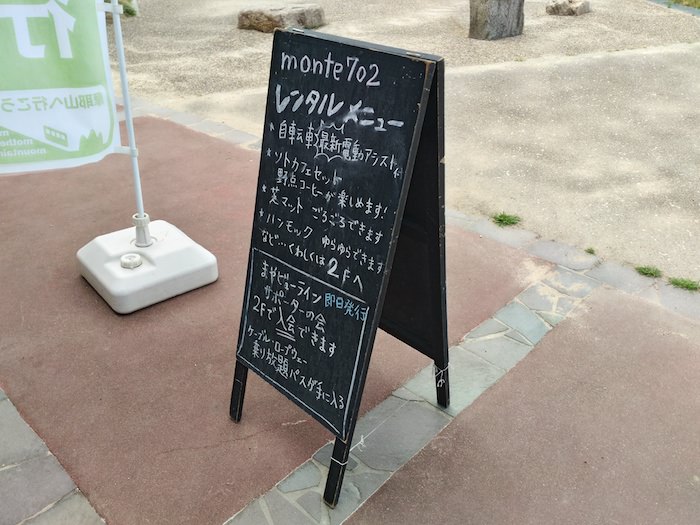 monte702
レンタルメニュー
* 自転車 最新電動アシスト付
* ソトカフェセット
野点コーヒーが楽しめます!
* 茣マット ごろごろできます
* ハンモック ゆらゆらできます
など…くわしくは2Fへ
まやビューライン 即日発行
サポーターの会
2Fで入会できます
ケーブル・ロープウェー
乗り放題パスが手に入る
行
摩耶山へ行こう
mothe
mountain